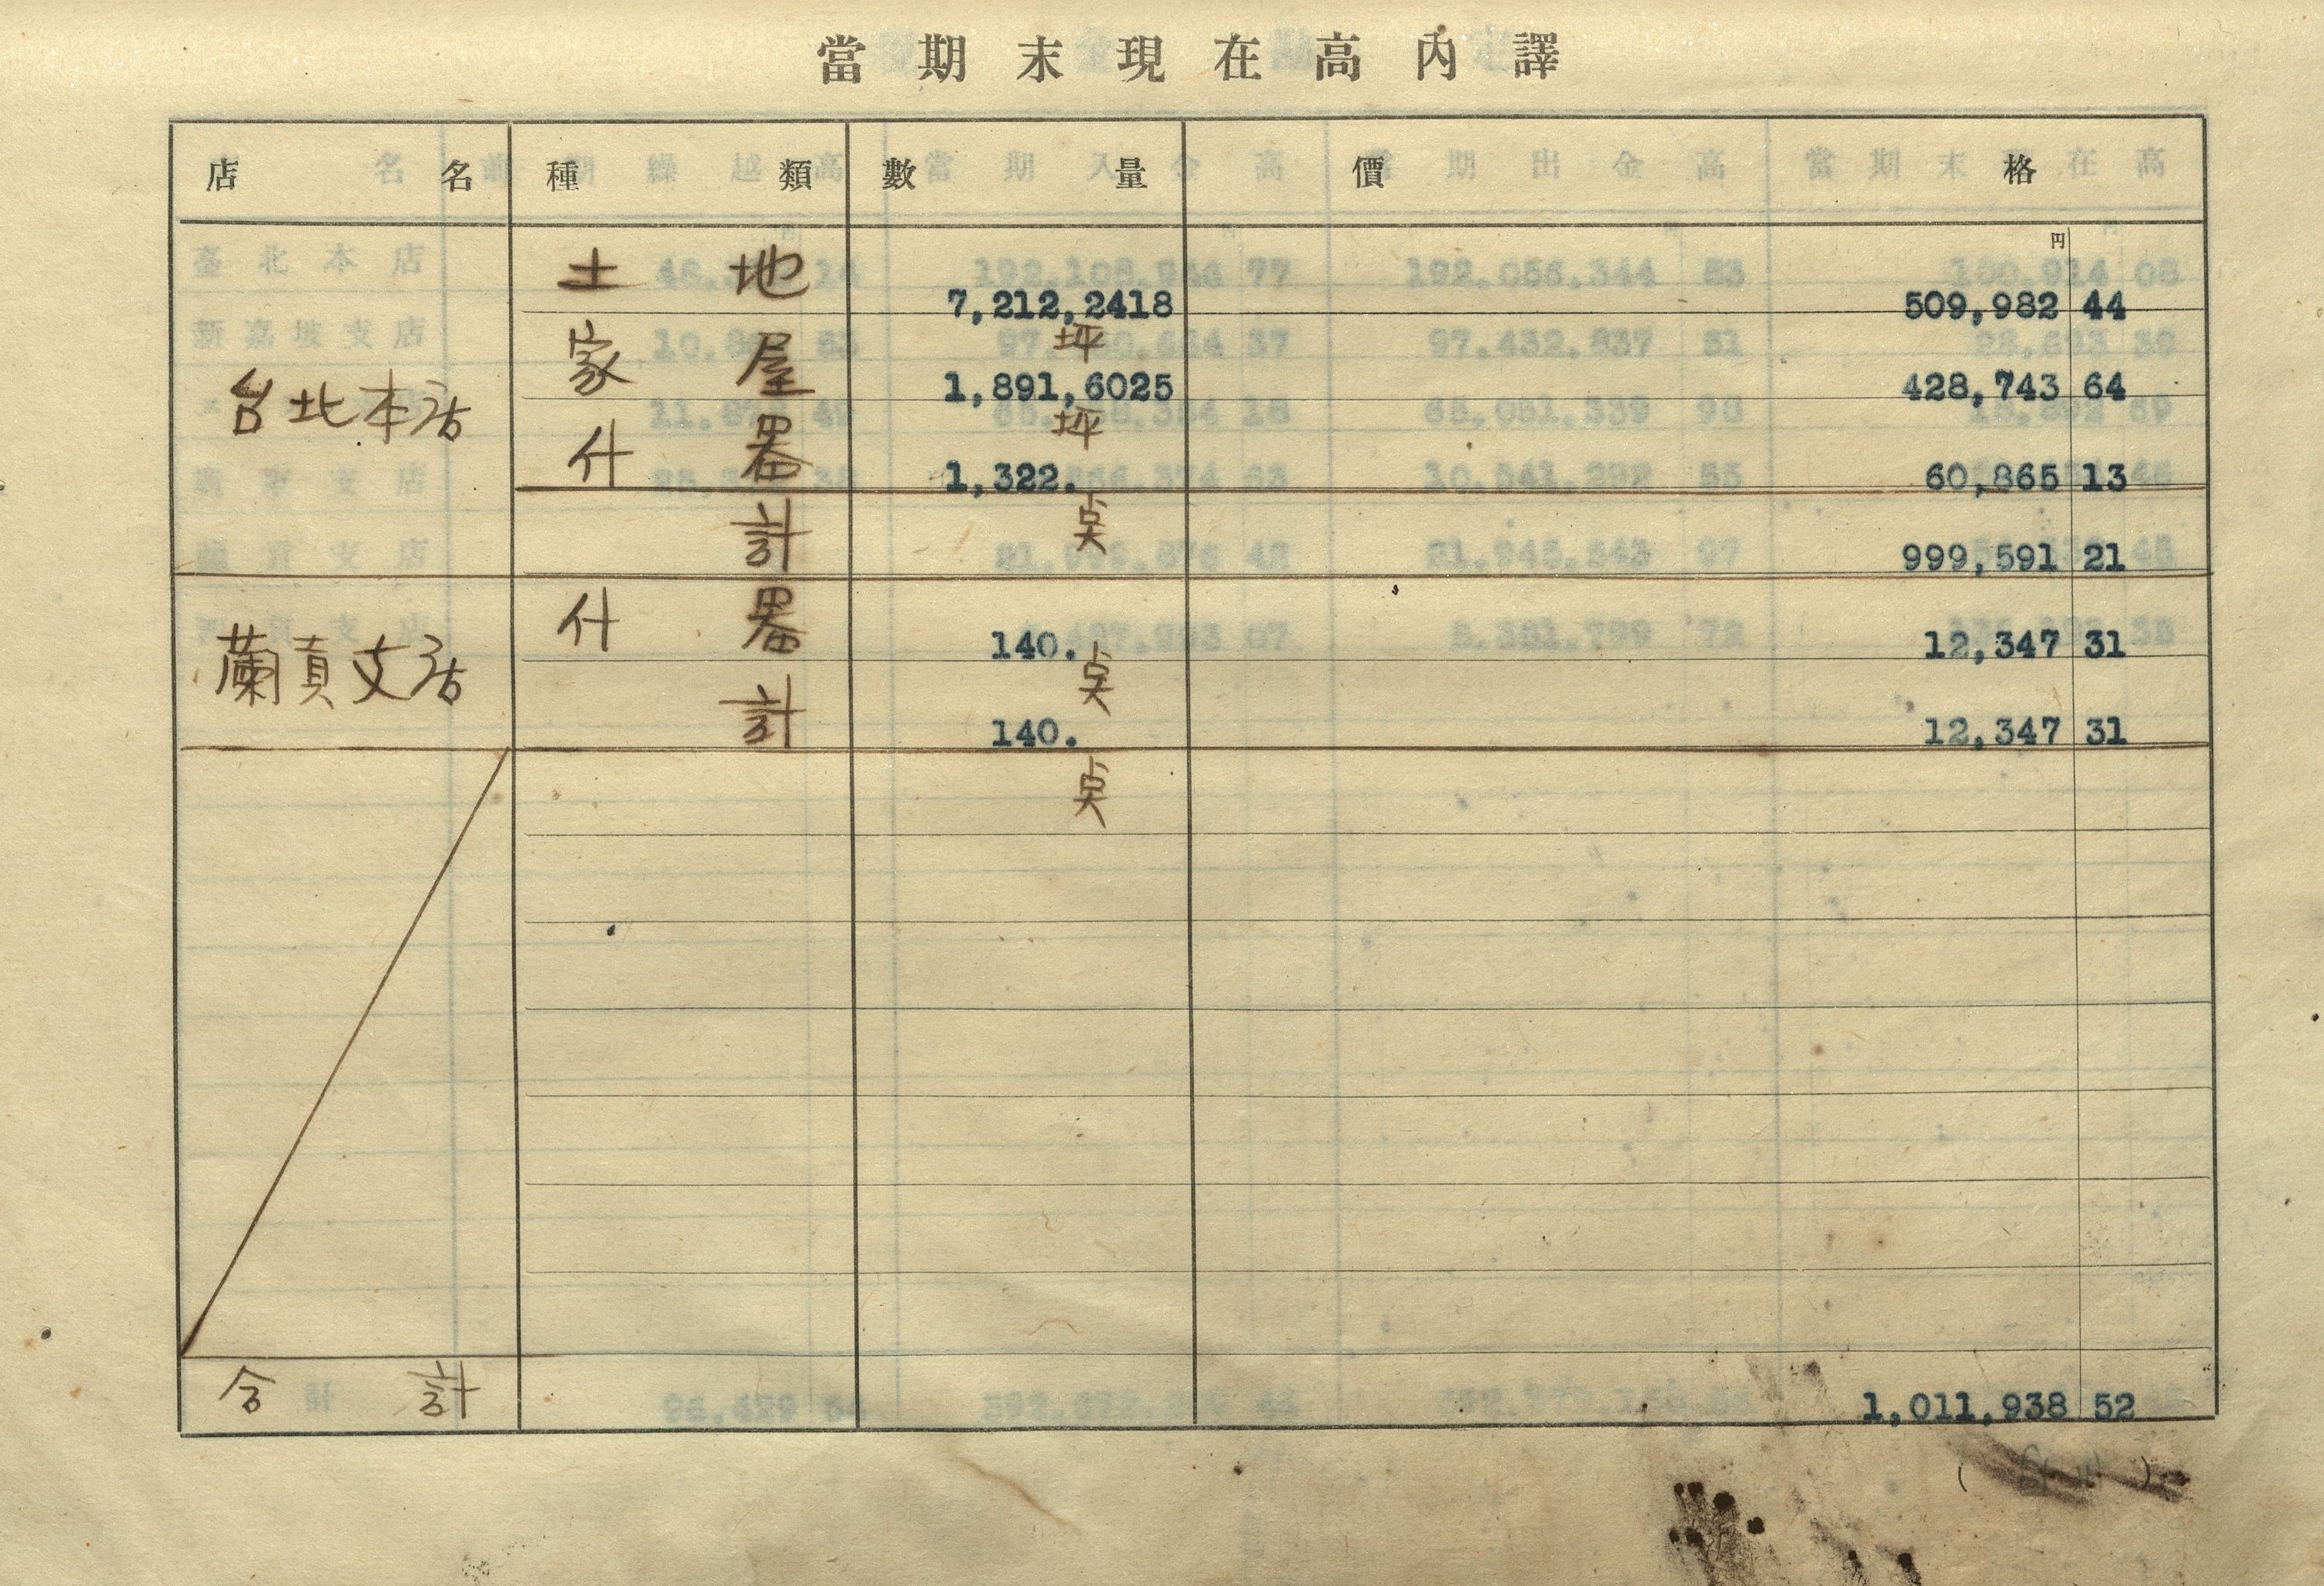 當期末現在高內譯
店名 種類 數量 價格
円
土地 7,212,2418坪 509,982 44
台北本店 家屋 1,891,6025坪 428,743 64
什器 1,322.点 60,865 13
計 999,591 21
蘭貢支店 什器 140.点 12,347 31
計 140.点 12,347 31
合計 1,011,938 52